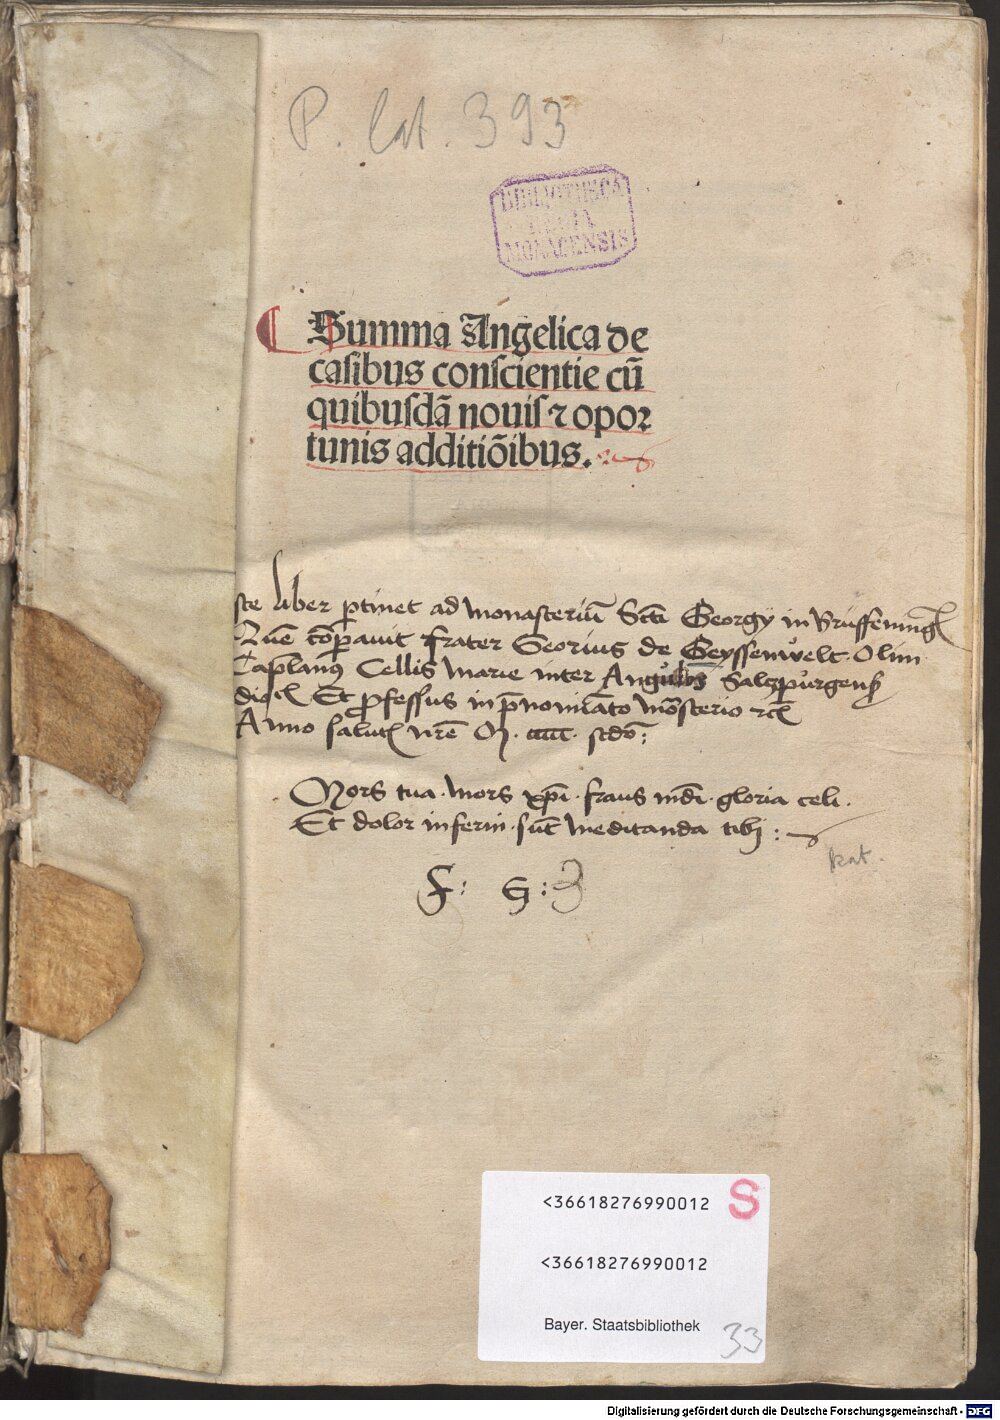 P. lat. 393
BIBLIOTHECA
REGIA
MONACENSIS
Summa Angelica de
casibus conscientie cū
quibusdā nouis ⁊ opor
tunis additiōibus.
ste liber ptinet ad monasteriū Scti Georgy in Brüffening
Quē cōpauit frater Georius de Geyssenvelt. Olim
Caplanus Cellis Marie inter Salczpurgens
dioc Et professus in pnominato mōsterio
Anno salut nre M. cccc. scdo:
Mors tua. mors xpi. fraus mdi. gloria celi.
Et dolor inferni. sūt meditanda tibj:
kat.
F: G:
<36618276990012
S
<36618276990012
Bayer. Staatsbibliothek
33
Digitalisierung gefördert durch die Deutsche Forschungsgemeinschaft - DFG